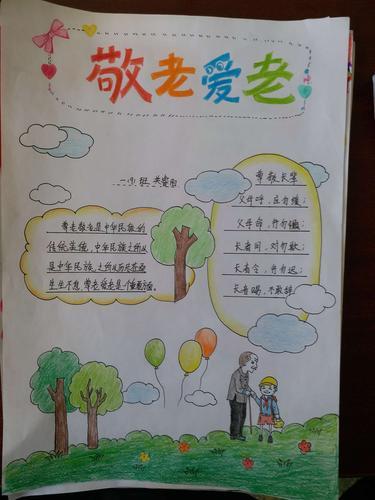 敬老爱老
一小班
尊敬长辈
父母呼，应勿缓；
父母命，行勿懒；
长者问，对勿欺；
长者令，行勿迟；
长者赐，不敢辞。
尊老敬老是中华民族的
传统美德，中华民族之所以
是中华民族，之所以历尽苍桑
生生不息，尊老爱老是个重要